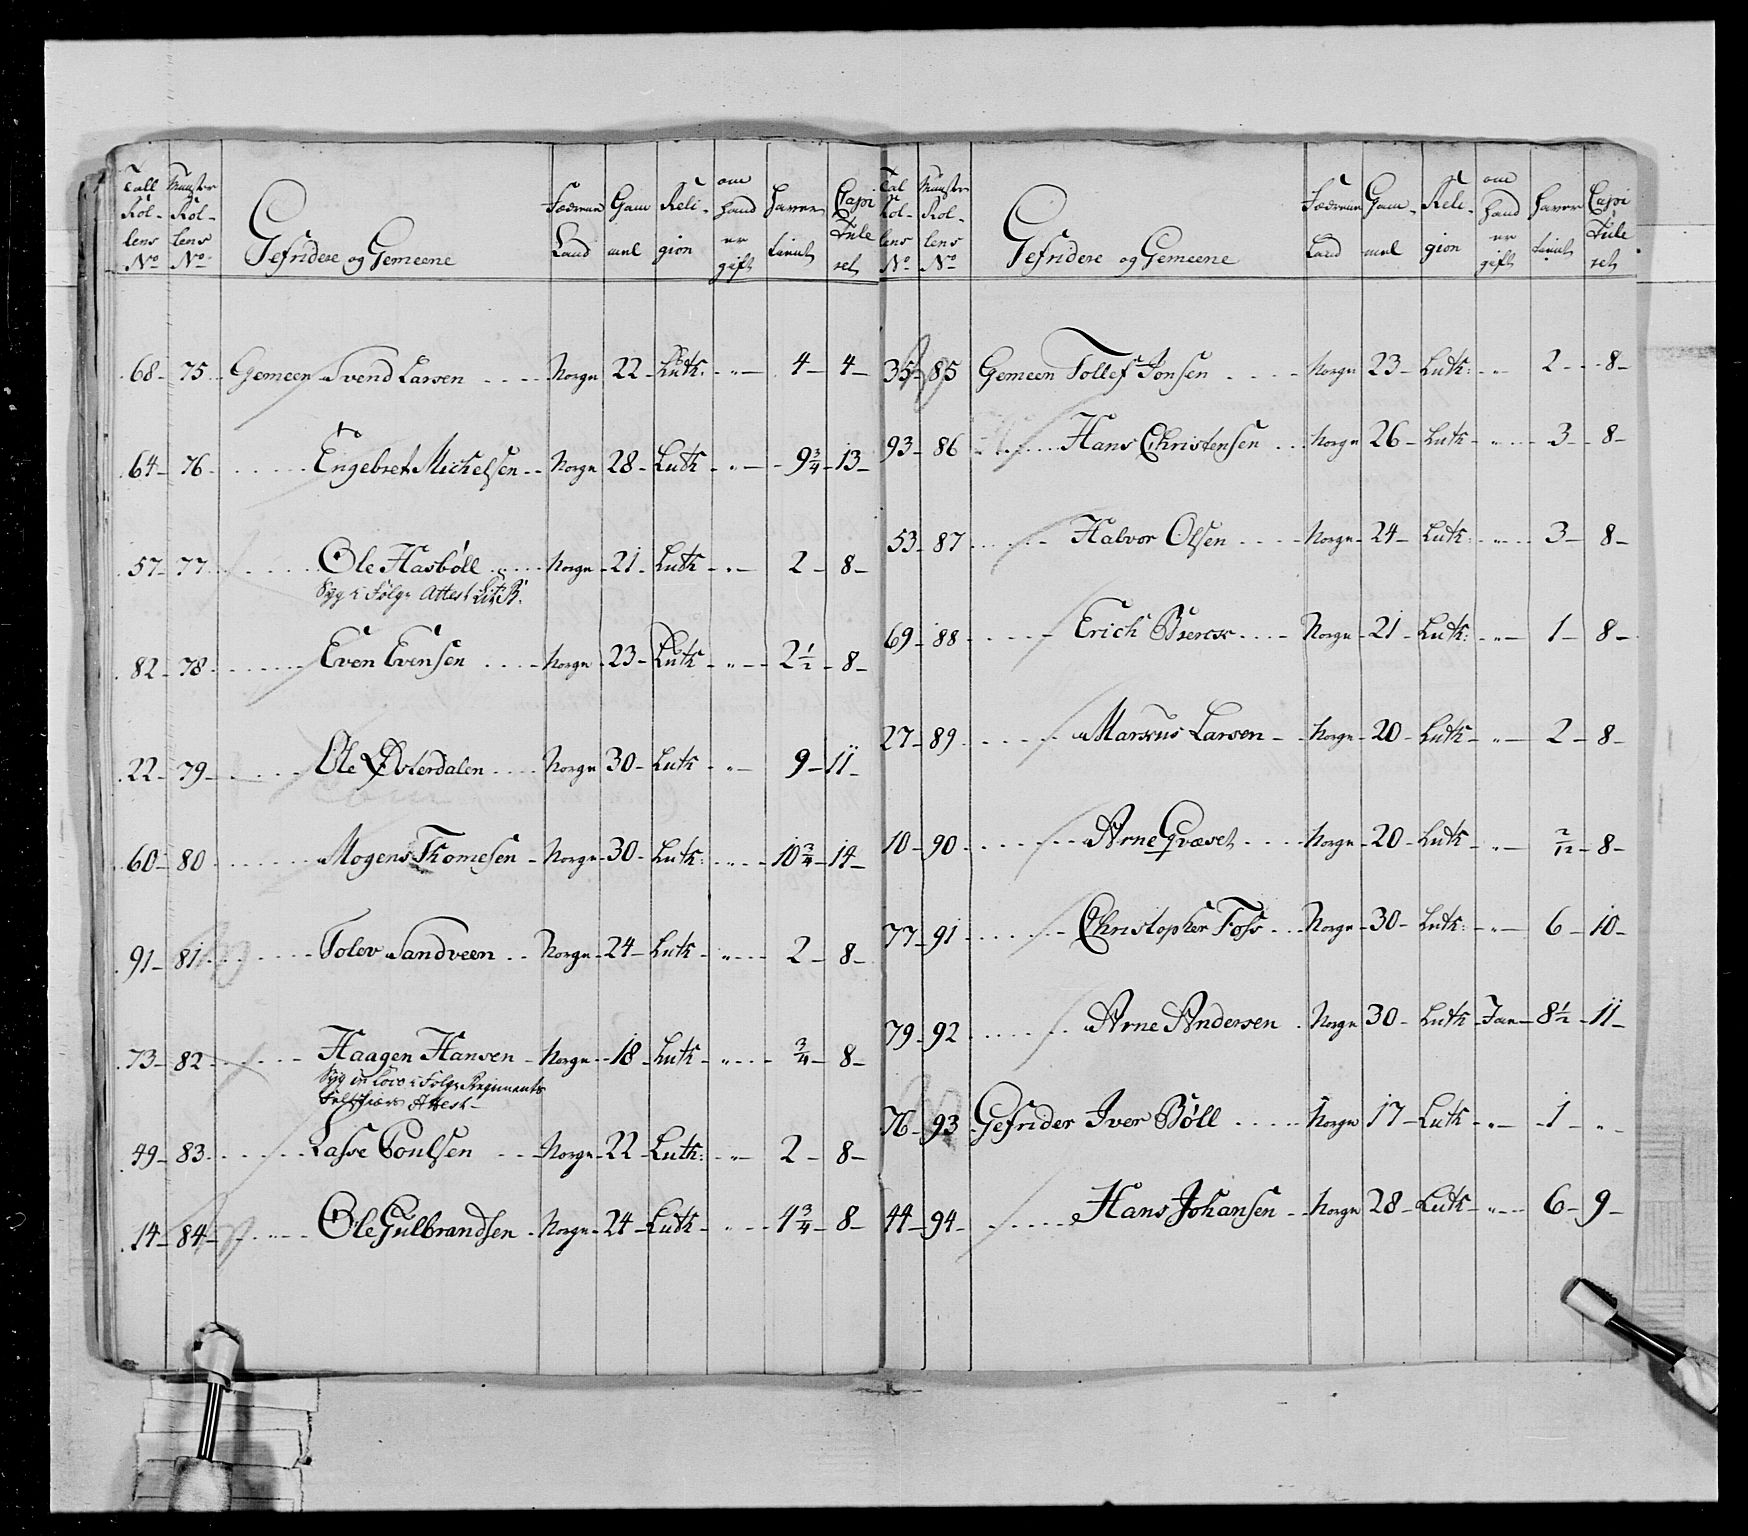 Tall Rol- lens No Munster Rol- lens No Gefridere og Gemeene Fædrene Land Gam mel Reli- gion om hand er gift haver tient Capi tule ret
68 - 75 Gemeen Svend Larsen Norge 22 Luth: " 4 4
64 - 76 Engebret Michelsen Norge 28 Luth " 9 3/4 13
57 - 77 Ole Hasböll Norge 21 Luth " 2 8
Syg i Følge Attest Lit: B:
82 - 78 Even Evensen Norge 23 Luth " 2 1/2 8
22 - 79 Ole Østerdalen Norge 30 Luth " 9 11
60 - 80 Mogens Thomesen Norge 30 Luth: " 10 3/4 14
91 - 81 Tolov Sandveen Norge 24 Luth " 2 8
73 - 82 Haagen Hansen Norge 18 Luth " 3/4 8
Syg in Loco i Følge Regiments
Feltskiærs Attest
49 - 83 Lasse Poulsen Norge 22 Luth: " 2 8
14 - 84 Ole Gulbrandsen Norge 24 Luth " 4 3/4 8
Tal Rol- lens No Munster Rol- lens No Gefridere og Gemeene Fædrene Land Gam- mel Reli- gion om hand er gift haver tient Capi tule ret
35 - 85 Gemeen Tollef Jonsen Norge 23 Luth: " 2 8
93 - 86 Hans Christensen Norge 26 Luth " 3 8
53 - 87 Halvor Olsen Norge 24 Luth: " 3 8
69 - 88 Erich Norge 21 Luth: " 1 8
27 - 89 Marcus Larsen Norge 20 Luth " 2 8
10 - 90 Arne Qvævet Norge 20 Luth " 2/12 8
77 - 91 Christopher Foss Norge 30 Luth: " 6 10
79 - 92 Arne Andersen Norge 30 Luth Jae 8 1/2 11
76 - 93 Gefrider Iver Böll Norge 17 Luth " 1 "
44 - 94 Hans Johansen Norge 28 Luth " 6 9